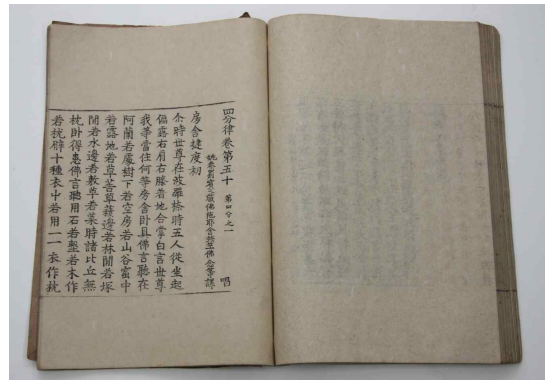 四分律卷第五十 第四分之一 唱
姚秦罽賓三藏佛陀耶舍共竺佛念等譯
房舍揵度初
尒時世尊在波羅㮈時五人從坐起
偏露右肩右膝著地合掌白言世尊
我等當住何等房舍卧具佛言聽在
阿蘭若處樹下若空房若山谷窟中
若露地若草𦿆草𧂐邊若林間若塚
間若水邊若敷草若葉時諸比丘無
枕卧得患佛言聽用石若墼若木作
若枕臂十種衣中若用一一衣作枕